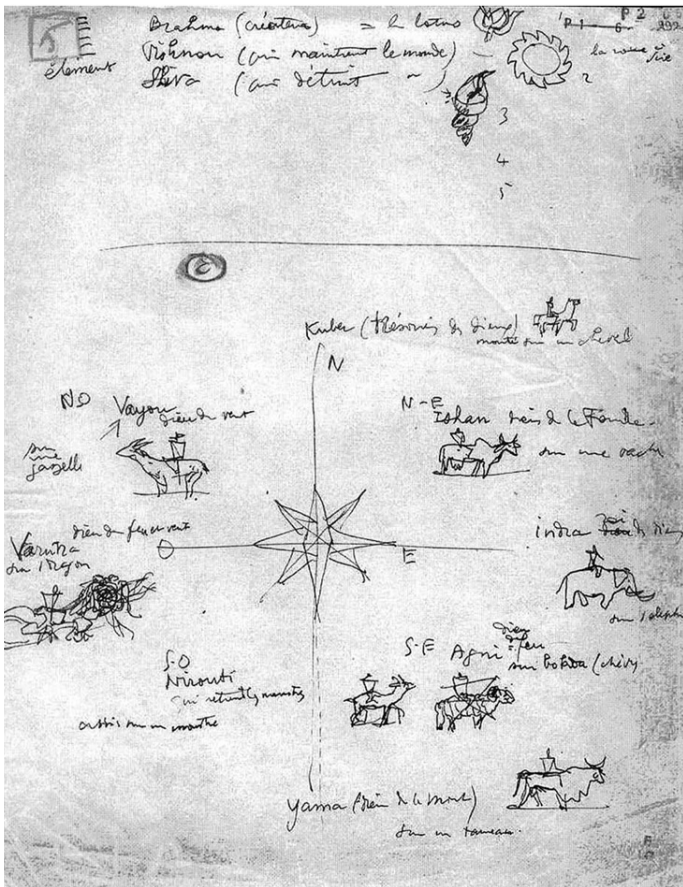 5
élement
Brahma (créateur) = le lotus P 1 6 P 2
Vishnou (qui maintient le monde) — la roue
Shiva (qui détruit 2
3
4
5
C
Kuber (trésorier des dieux)
monté sur un cheval
N
NO Vayou
dieu du vent
sur
une
gazelle
N-E
Ishan dieu de la
sur une vache
dieu du
Varuna
sur dragon
O
E
indra roi
des dieux
sur l'eleph
S.O
Nirouti
qui retient les monstres
assis sur un monstre
S-E Agni
dieu
feu
sur bokba (chèvre)
Yama (dieu de la mort)
sur un taureau.